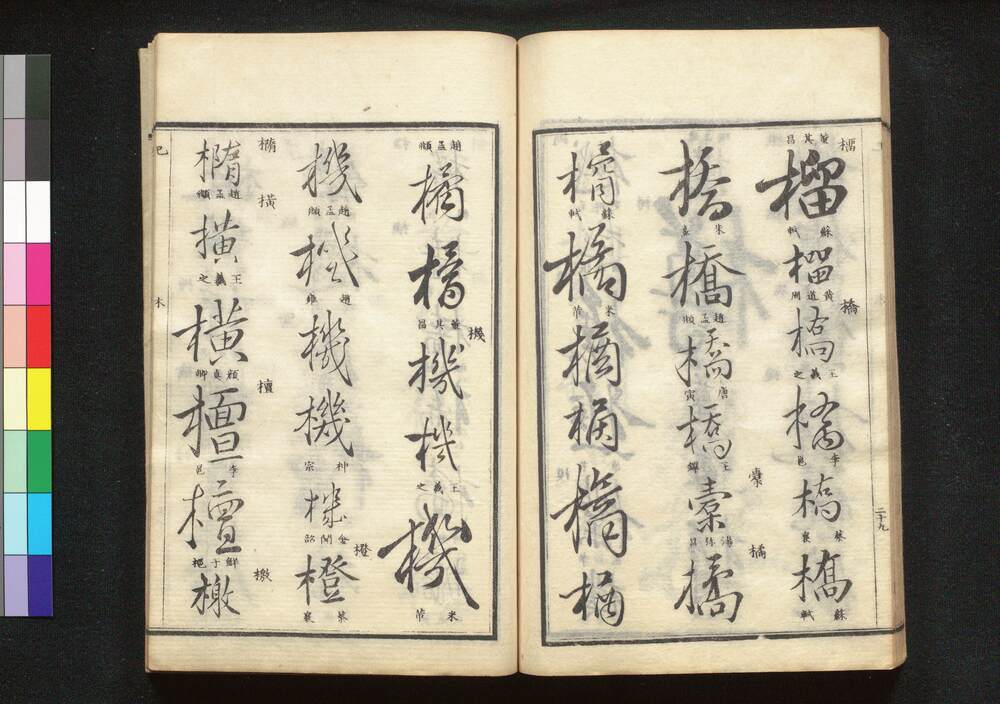 榴
董其昌
榴
蘇軾
榴
黄道周
橋
橋
王羲之
橋
李邕
橋
蔡襄
橋
蘇軾
二十九
橋
橋
趙孟頫
橋
唐寅
橋
王鐸
橘
橘
橘
蘇軾
橘
米芾
橘
橘
橘
橘
趙孟頫
橘
橘
董其昌
機
機
機
王羲之
機
米芾
機
趙孟頫
機
趙雍
機
機
機
橙
橙
蔡襄
橢
橢
趙孟頫
橫
橫
王羲之
橫
顏真卿
檀
檀
李邕
檀
鮮于樞
檄
檄
巳
木